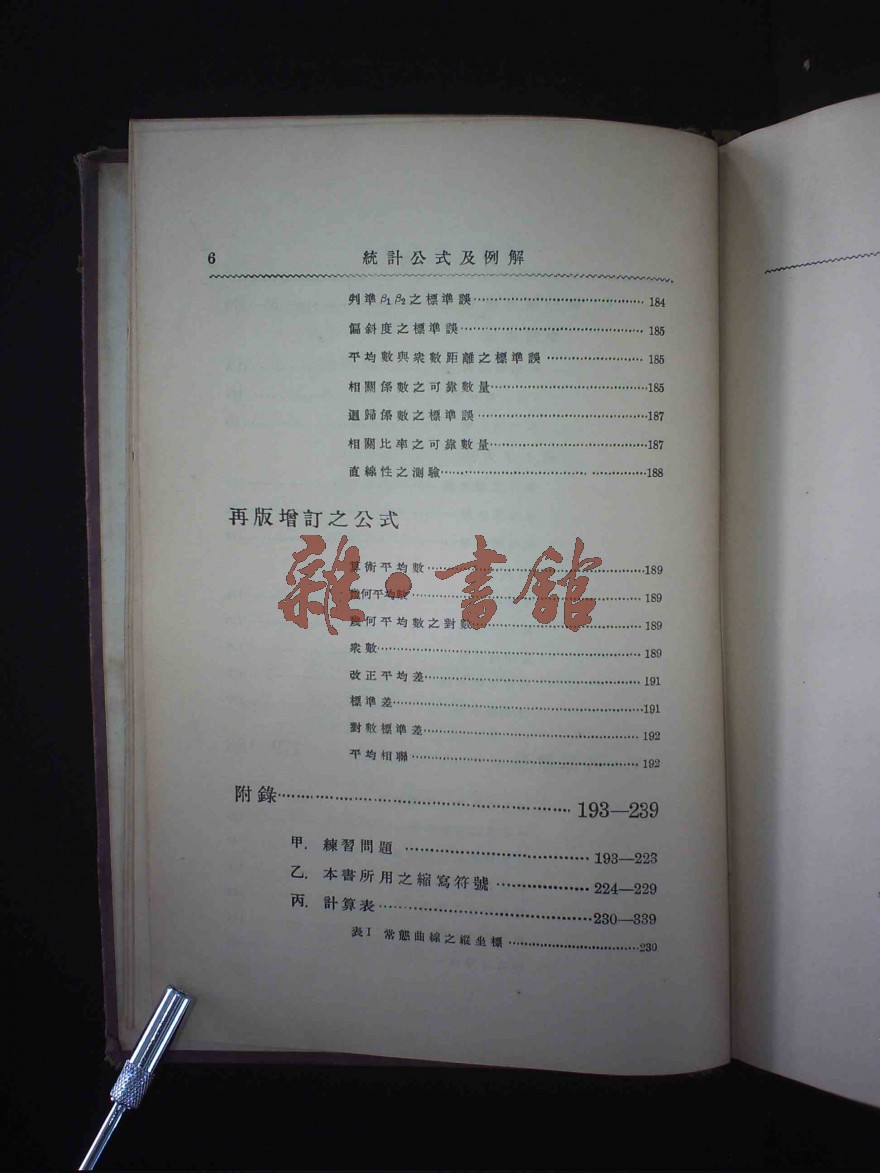 6 統計公式及例解
判準β₁β₂之標準誤 184
偏斜度之標準誤 185
平均數與衆數距離之標準誤 185
相關係數之可靠數量 185
迴歸係數之標準誤 187
相關比率之可靠數量 187
直線性之測驗 188
再版增訂之公式
算術平均數 189
幾何平均數 189
幾何平均數之對數 189
衆數 189
改正平均差 191
標準差 191
對數標準差 192
平均相聯 192
附錄 193—239
甲. 練習問題 193—223
乙. 本書所用之縮寫符號 224—229
丙. 計算表 230—339
表I 常態曲線之縱坐標 230
雜·書館